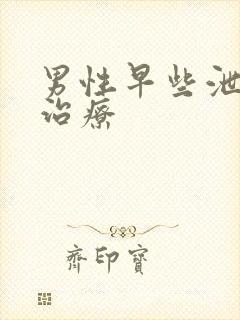 男性早些泄
治療
齊印寶